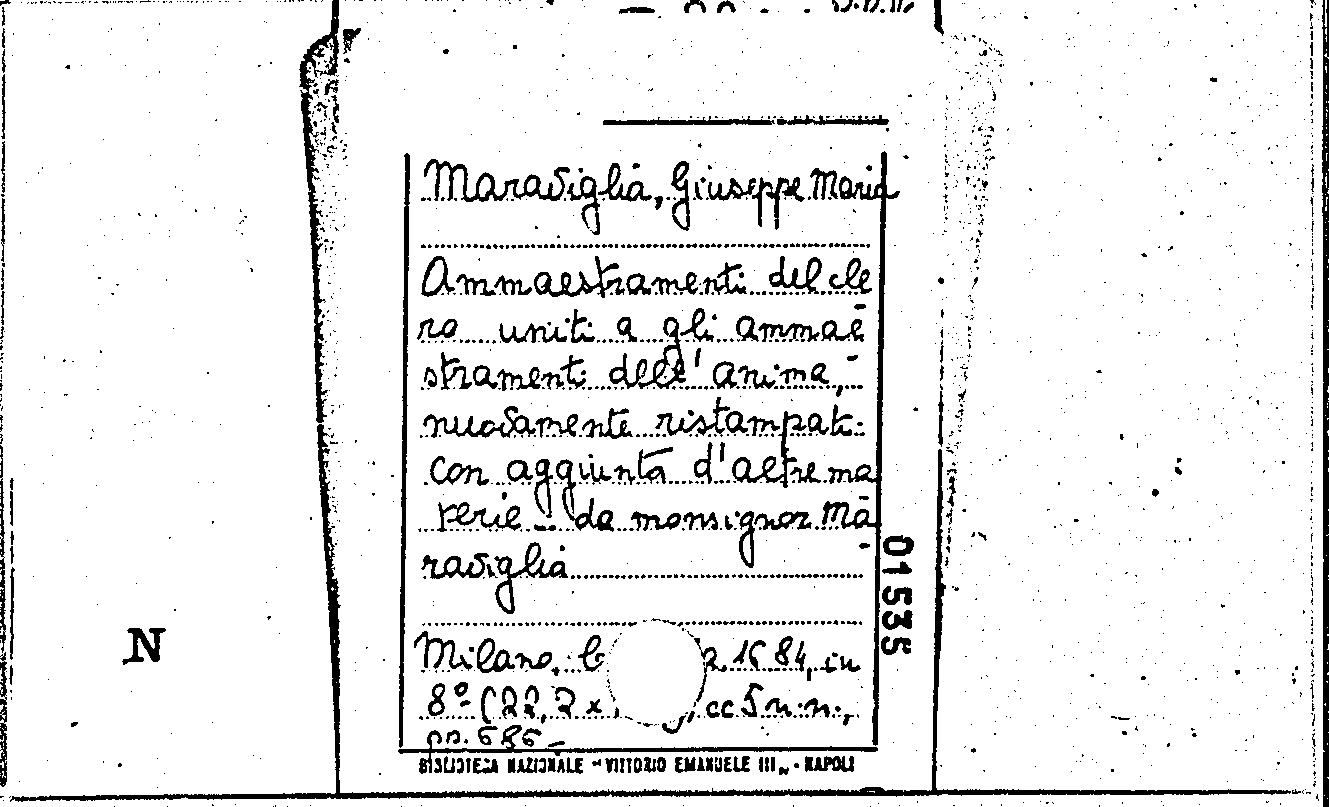 Maraviglia, Giuseppe Maria
Ammaestramenti del cle
ro uniti a gli ammae-
stramenti dell' anima,-
nuovamente ristampati
con aggiunta d'altre ma
terie - da monsignor Ma-
raviglia
01535
N
Milano, 1684, in
8º (22,2 x , cc 5 n.n.,
pp. 686 -
BIBLIOTECA NAZIONALE "VITTORIO EMANUELE III" - NAPOLI